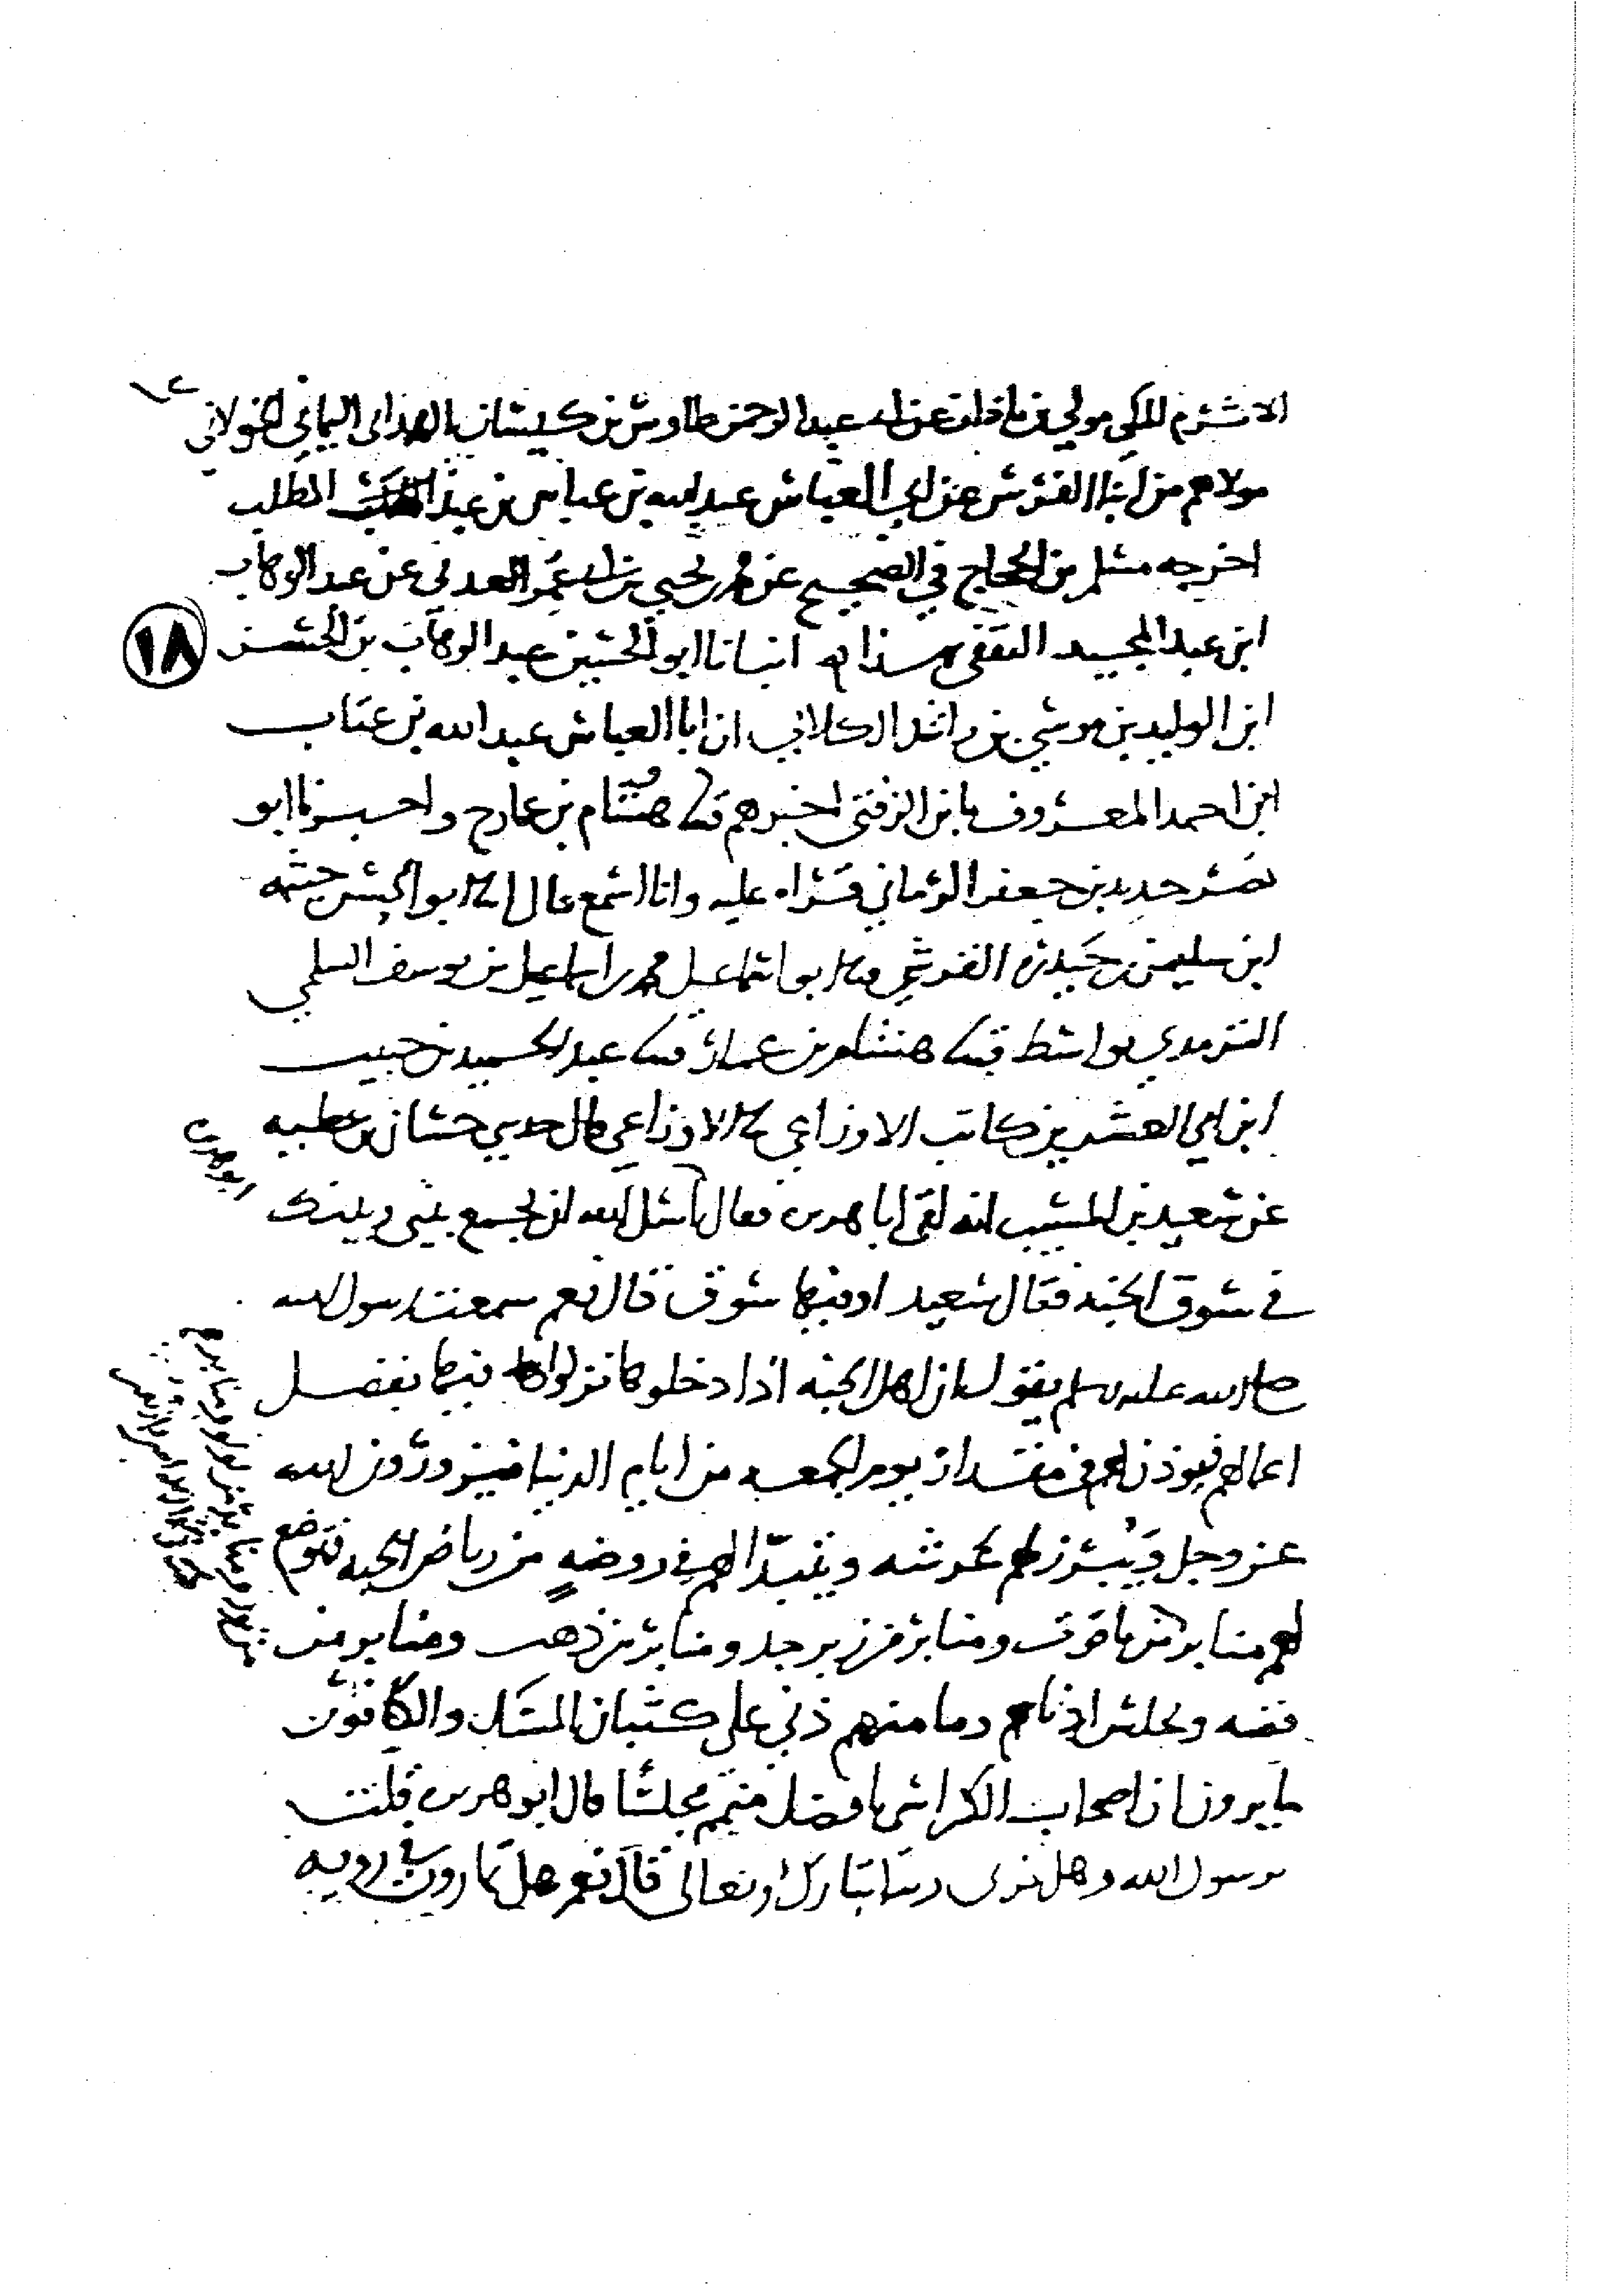 الاثرم المكي مولي بن باذان عن ابي عبد الرحمن طاوس بن كيسان الهمداني اليماني الخولاني
مولاهم من ابنا الفرس عن ابي العباس عبد الله بن عباس بن عبد المطلب
اخرجه مسلم بن الحجاج في الصحيح عن محمد بن يحيي بن ابي عمر العدني عن عبد الوهاب
ابن عبد المجيد الثقفي بهذا انبانا ابو الحسين عبد الوهاب بن الحسن
١٨
ابن الوليد بن موسي بن راشد الكلابي ان ابا العباس عبد الله بن عتاب
ابن احمد المعروف بابن الزفتي اخبرهم قثنا هشام بن عمار ح واخبرنا ابو
نصر حديد بن جعفر الرماني قراه عليه وانا اسمع قال ثنا ابو الحسن خيثمه
ابن سليمن بن حيدره القرشي ثنا ابو اسماعيل محمد بن اسماعيل بن يوسف السلمي
الترمدي بواسط قثنا هشام بن عمار قثنا عبد الحميد بن حبيب
ابن ابي العشرين كاتب الاوزاعي ثنا الاوزاعي قال حدثني حسان بن عطيه
عن سعيد بن المسيب انه لقي ابا هريرة فقال اسل الله ان يجمع بيني وبينك
ابو هريرة
في سوق الجنه فقال سعيد اوفيها سوق قال نعم سمعت رسول الله
صلى الله عليه وسلم يقول ان اهل الجنه اذا دخلوها نزلوا فيها بفضل
اعمالهم فيوذن لهم في مقدار يوم الجمعه من ايام الدنيا فيزورون الله
عز وجل ويبرز لهم عرشه ويتبدا لهم في روضةٍ من رياض الجنه فتوضع
لهم منابر من ياقوت ومنابر من زبرجد ومنابر من ذهب ومنابر من
فضه ويجلس ادناهم وما منهم دني علي كثبان المسك والكافور
ما يرون ان اصحاب الكراسي بافضل منهم مجلسًا قال ابو هريرة قلت
يرسول الله وهل نرى ربنا تبارك وتعالى قال نعم هل تمارون في رويه